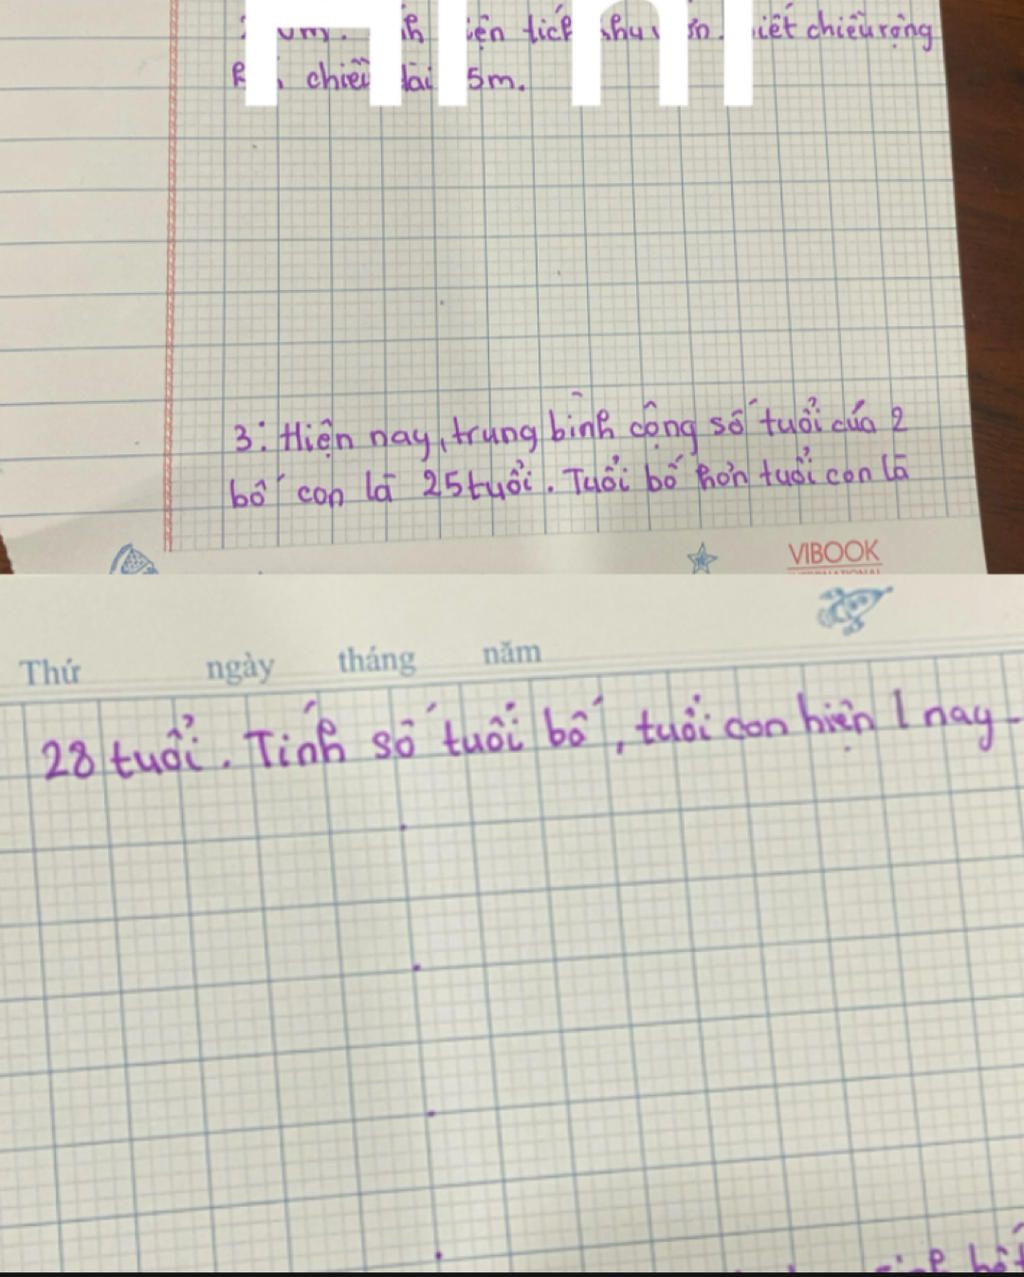 tích chiều rộng
chiều dài 5m.
3: Hiện nay, trung bình cộng số tuổi của 2
bố con là 25 tuổi. Tuổi bố hơn tuổi con là
VIBOOK
Thứ ngày tháng năm
28 tuổi. Tính số tuổi bố, tuổi con hiện 1 nay.